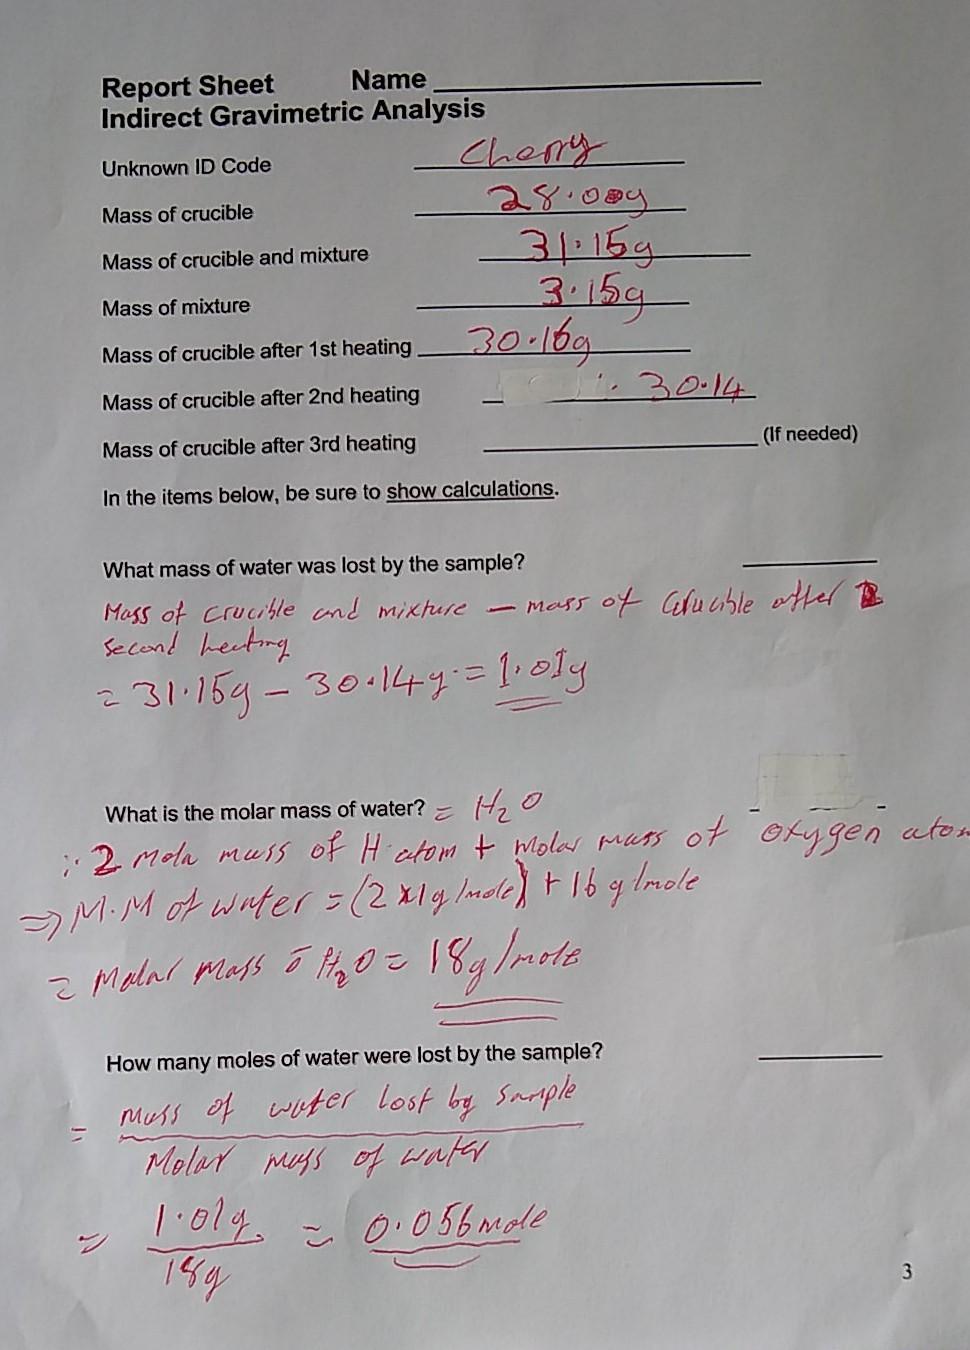 Report Sheet Name
Indirect Gravimetric Analysis
Unknown ID Code Cherry
Mass of crucible 28.00g
Mass of crucible and mixture 31.15g
Mass of mixture 3.15g
Mass of crucible after 1st heating 30.16g
Mass of crucible after 2nd heating 30.14
Mass of crucible after 3rd heating (If needed)
In the items below, be sure to show calculations.
What mass of water was lost by the sample?
Mass of crucible and mixture - mass of crucible after
second heating
= 31.15g - 30.14g = 1.01g
What is the molar mass of water? = H₂O
∴ 2 mola mass of H atom + molar mass of oxygen atom
⇒ M.M of water = (2 x 1g/mole) + 16 g/mole
= Molar mass of H₂O = 18g/mole
How many moles of water were lost by the sample?
= mass of water lost by sample
Molar mass of water
= 1.01g = 0.056mole
18g
3